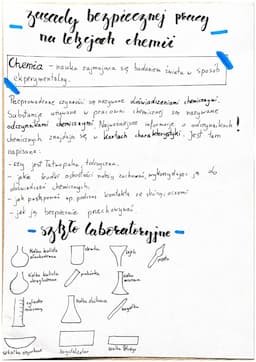 zasady bezpiecznej pracy
na lekcjach chemii
Chemia - nauka zajmująca się badaniem świata w sposób
eksperymentalny.
Przeprowadzone czynności są nazywane doświadczeniami chemicznymi.
Substancje używane w pracowni chemicznej są nazywane
odczynnikami chemicznymi. Najważniejsze informacje o odczynnikach !
chemicznych znajdują się w kartach charakterystyki. Jest tam
napisane:
- czy jest łatwopalna, toksyczna.
- jakie środki ostrożności należy zachować wykorzystując ją do
doświadczeń chemicznych.
- jak postępować np. podczas kontaktu ze skórą, oczami
- jak ją bezpiecznie przechowywać
- szkło laboratoryjne -
kolba kulista
płaskodenna
zlewka
lejek
kolba kulista
okrągłodenna
probówka
cylinder
miarowy
kolba stożkowa
bagietka
szkiełko zegarkowe
krystalizator